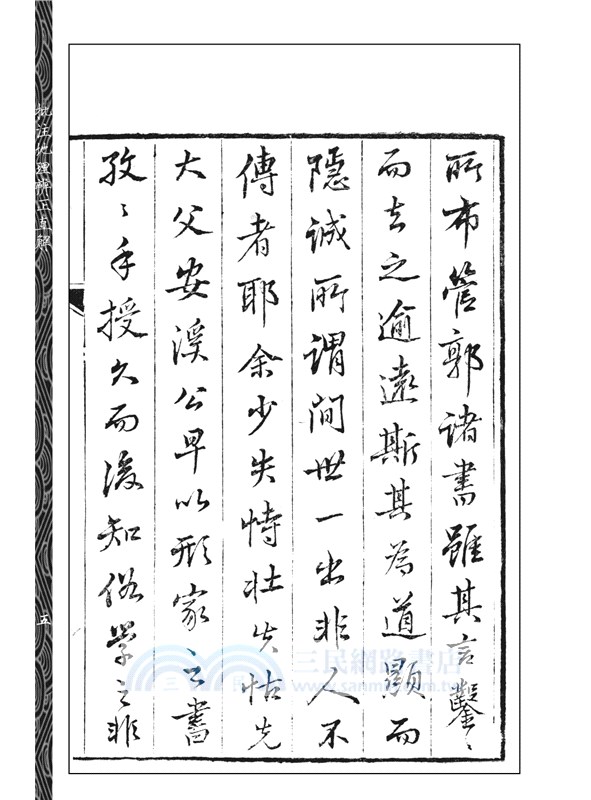 所布管郭諸書雖其言鑿〻
而去之逾遠斯其為道顯而
隱誠所謂間世一出非人不
傳者耶余少失恃壯失怙先
大父安溪公早以形家之書
孜〻手授久而後知俗學之非
批注地理辨正直解
五
三民網路書店
www.sanmin.com.tw